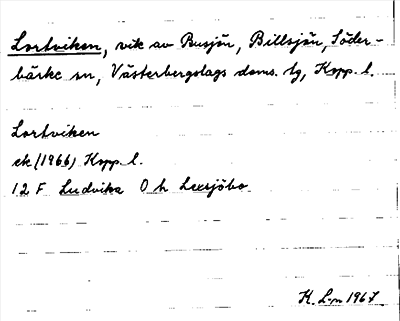 Lortviken, vik av Busjön, Billsjön, Söder-
bärke sn, Västerbergslags doms. tg, Kopp. l.
Lortviken
ek (1966) Kopp. l.
12 F Ludvika 0 h Lexsjöbo
K. L-n 1967.